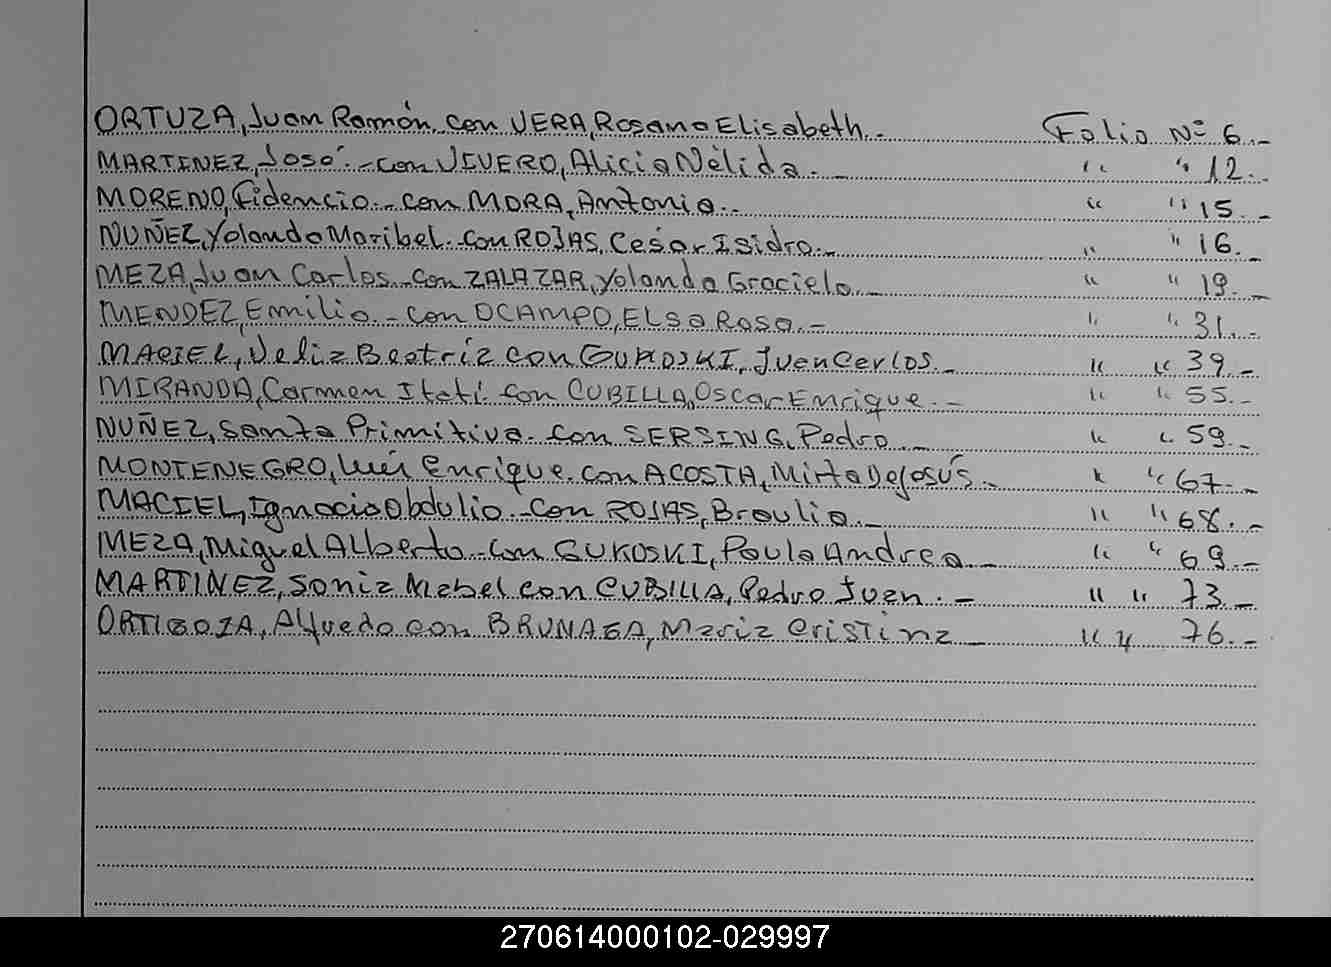 ORTUZA, Juan Ramón con VERA, Rosana Elisabeth.- Folio Nº 6.-
MARTINEZ, José.- con VIVERO, Alicia Nélida.- " " 12.-
MORENO, Fidencio.- con MORA, Antonia.- " " 15.-
NUÑEZ, Yolanda Maribel.- con ROJAS, Cesar Isidro.- " " 16.-
MEZA, Juan Carlos.- con ZALAZAR, Yolanda Graciela.- " " 19.-
MENDEZ, Emilio.- con OCAMPO, ELSA Rosa.- " " 31.-
MACIEL, Beatriz con GUKOSKI, Juan Carlos.- " " 39.-
MIRANDA, Carmen Itatí con CUBILLA, Oscar Enrique.- " " 55.-
NUÑEZ, Santa Primitiva.- con SERSING, Pedro.- " " 59.-
MONTENEGRO, Luis Enrique.- con ACOSTA, Mirta De Jesús.- " " 67.-
MACIEL, Ignacio Obdulio.- con ROJAS, Braulia.- " " 68.-
MEZA, Miguel Alberto.- con GUKOSKI, Paula Andrea.- " " 69.-
MARTINEZ, Sonia Mabel con CUBILLA, Pedro Juan.- " " 73.-
ORTIGOZA, Alfredo con BRUNAGA, Maria Cristina.- " " 76.-
270614000102-029997